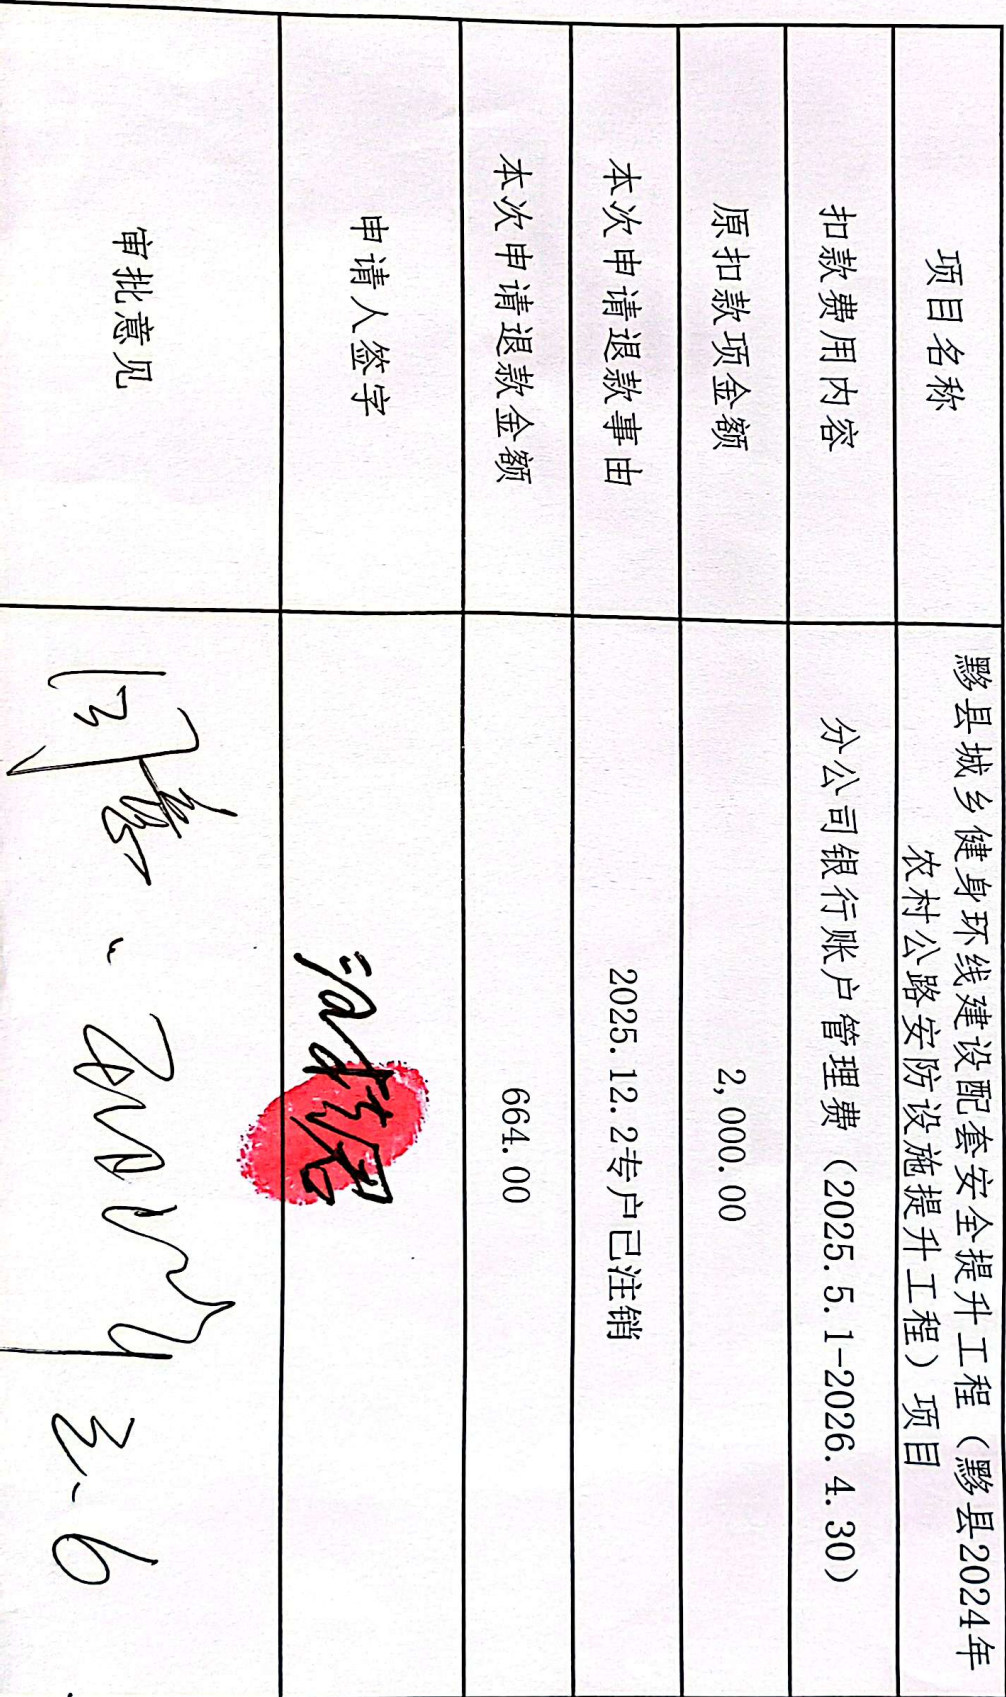 项目名称
黟县城乡健身环线建设配套安全提升工程（黟县2024年
农村公路安防设施提升工程）项目
扣款费用内容
分公司银行账户管理费（2025.5.1-2026.4.30）
原扣款项金额
2,000.00
本次申请退款事由
2025.12.2专户已注销
本次申请退款金额
664.00
申请人签字
审批意见
同意
3-6